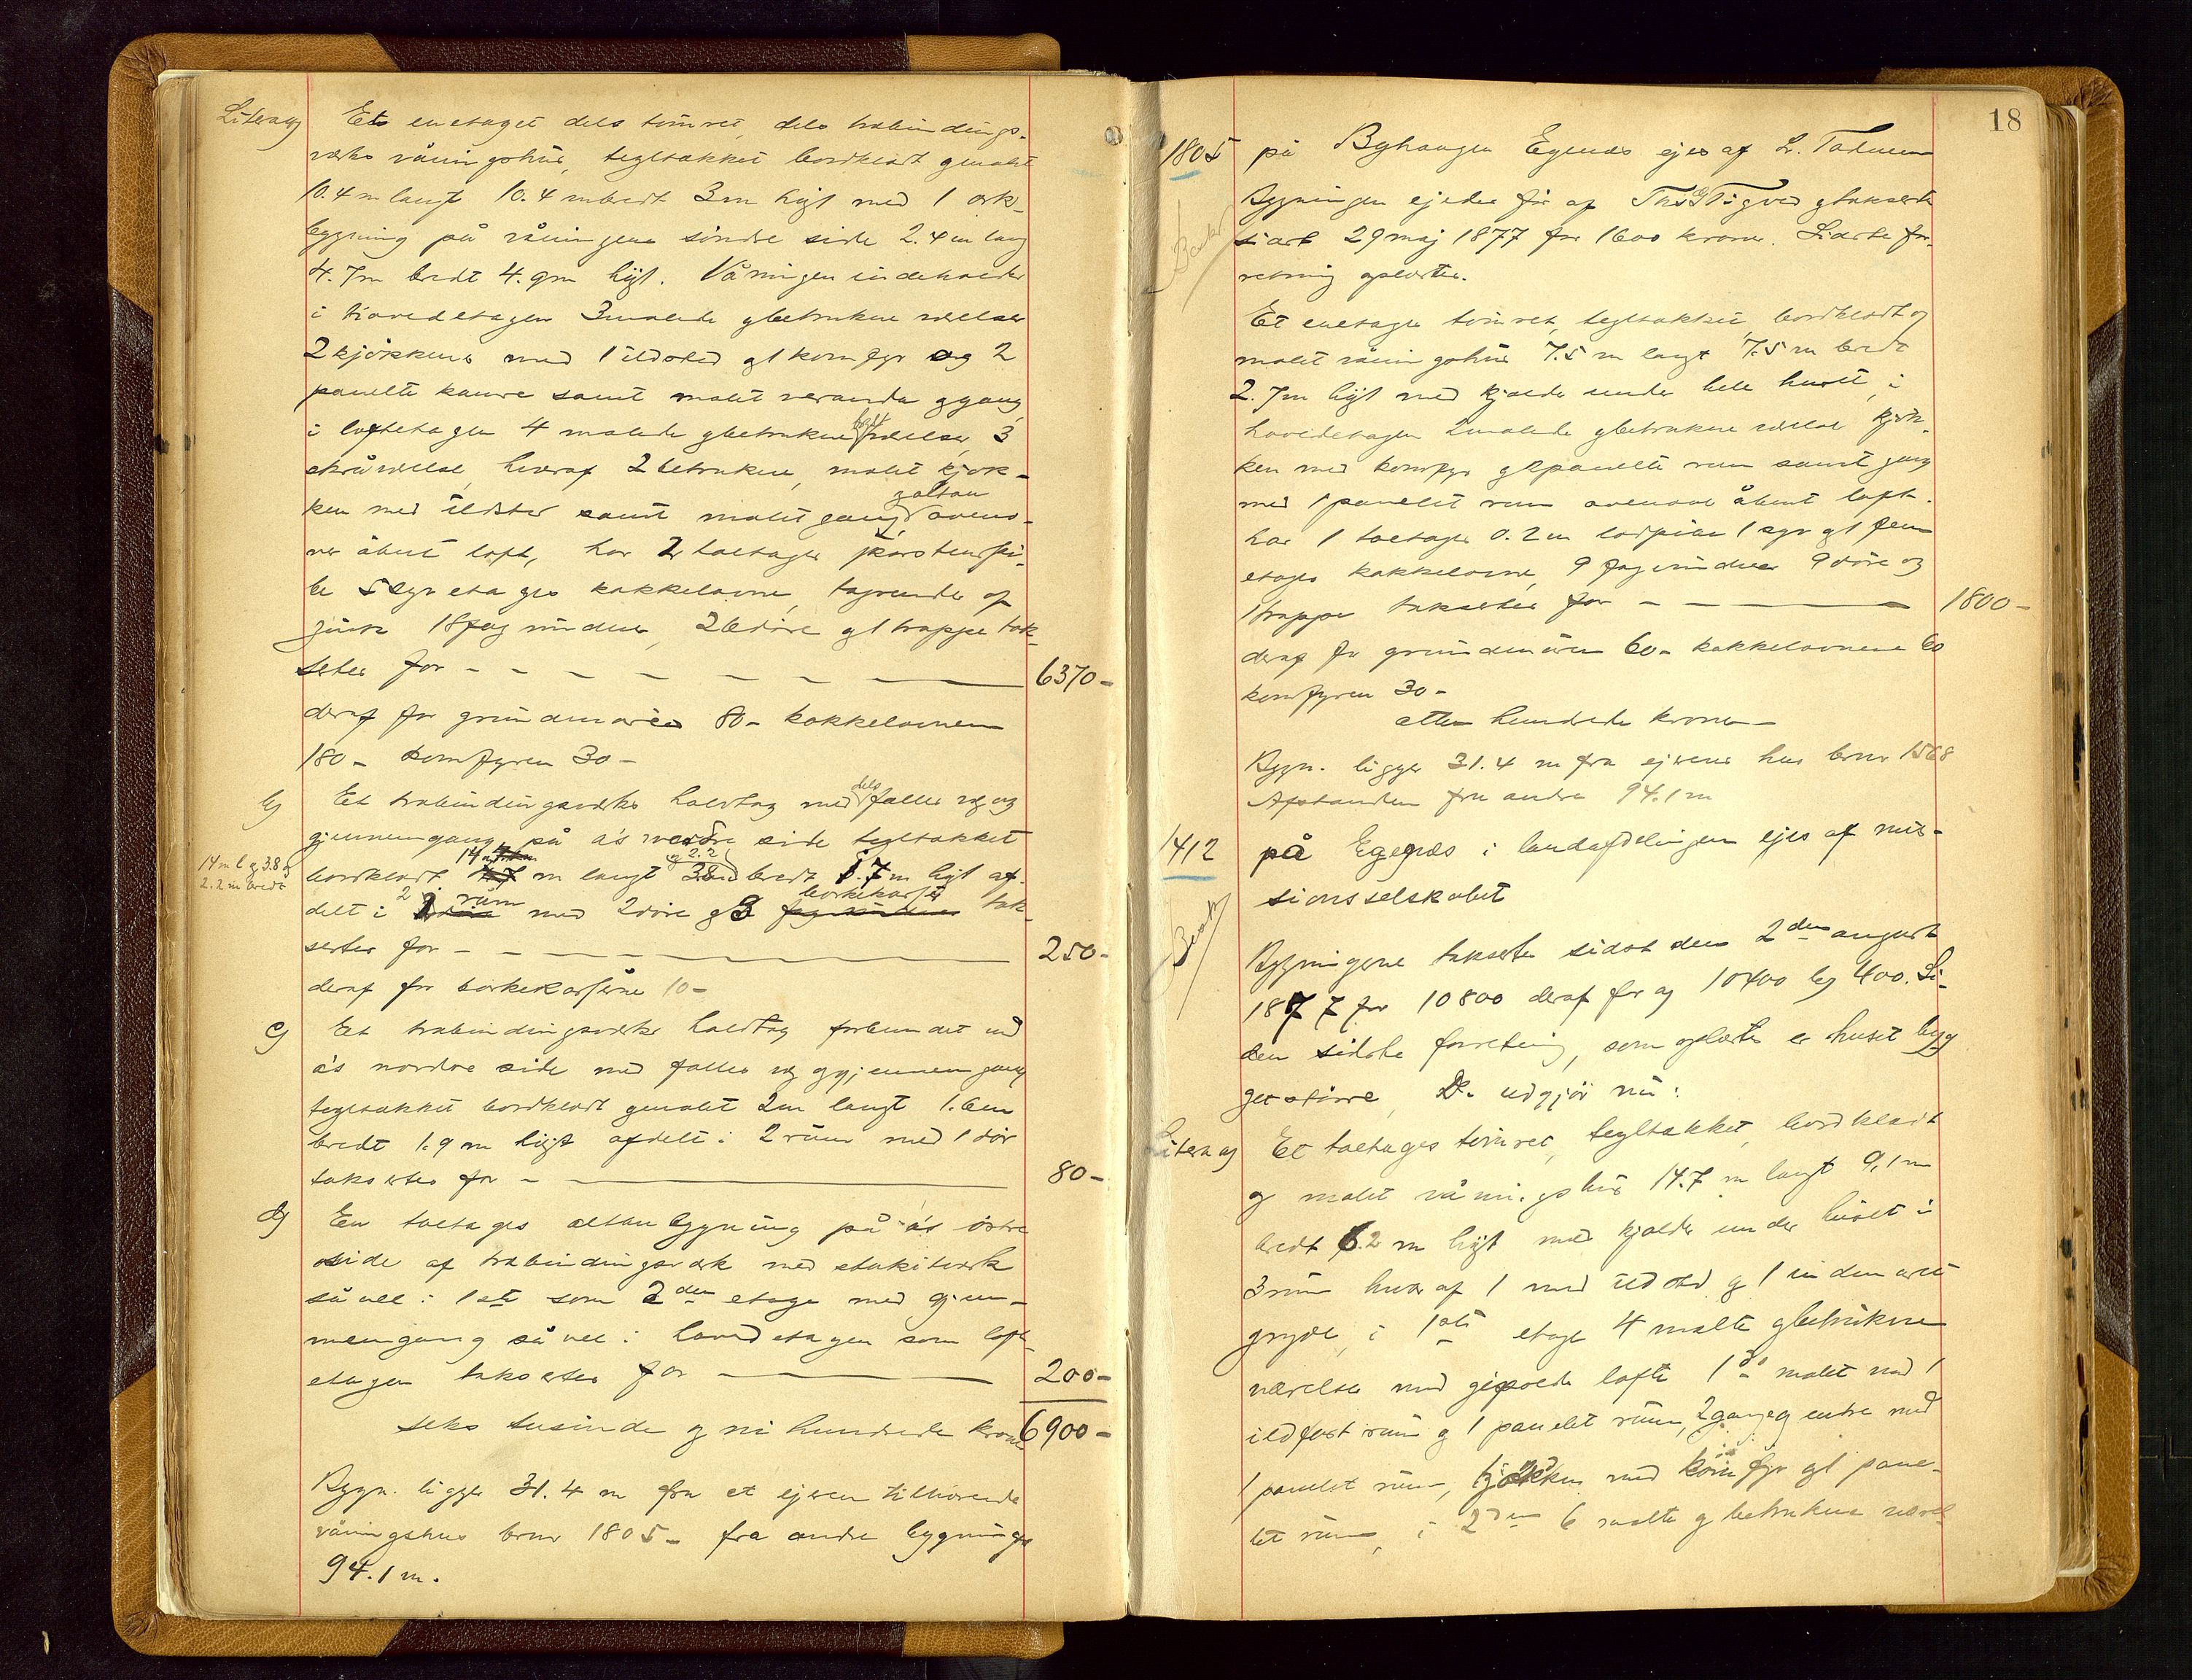 Litera a)
Et enetaget dels tømret, dels trabindings-
værks våningshus, tegltækket bordklædt gmalet
10.4 m langt 10.4 m bredt 3 m høgt med 1 ark-
bygning på våningens søndre side 2.4 m lang
4.7m bredt 4.9m høgt. Våningen indeholder
i hovedetagen 3 malede gbetrukne værelser
2 kjøkkener med 1 ildsted g1 komfyr og 2
panelte kamre samt malet veranda ggang,
i loftetagen 4 malede gbetrukne værelser, 3
skråværelse, hvoraf 2 betrukne, malet kjøk-
ken med ildsted samt malet gang galtan ovenо-
ver åbent loft, har 2 toetages skorstenspi-
be 5 syv etages kakkelovne, tagrender af
zink 18 fag vinduer, 26 døre g1 trappe tak-
seres for - - - - - - - 6370-
deraf for grundmuren 80- kakkelovnen
180- komfyren 30-
b)
Et trabindingsværks halvtag med dels fælles væg og
gjennemgang på a's nordre side tegltækket
14 m l g 3.8 g
2.2 m bredt
bordklædt 14 m langt 3.8 g 2.2 bredt 1.7 m høgt af-
delt i 2 rum med 2 døre g 3 borkekarfer tak-
seres for - - - - 250-
deraf for borkekarferne 10-
c)
Et trabindingsværks halvtag forbundet med
a's nordre side med fælles væg ggjennemgang
tegltækket bordklædt gmalet 2m langt 1.6m
bredt 1.9 m høgt afdelt i 2 rum med 1 dør
takseres for - 80-
d)
En toetages altanbygning på a's østre
side af trabindingsværk med stakitværk
såvel i 1ste som 2den etage med gjen-
nemgang såvel i hovedetagen som loft-
etagen takseres for 200-
seks tusinde g ni hundrede kroner 6900-
Bygn. ligger 31.4 m fra et ejeren tilhørende
våningshus brnr 1805 - fra andre bygninger
94.1 m.
18
1805 på Byhaugen Egenæs ejes af L. Tadnem
Bygningen ejedes før af Ths G Tigved gtakserte
sidst 29 maj 1877 for 1600 kroner. Sidste for-
retning oplæstes.
Et enetages tømret, tegltækket, bordklædt og
malet våningshus 7.5 m langt 7.5 m bredt
2.7m høgt med kjælder under hele huset, i
hovedetagen 2 malede gbetrukne værelse kjøk-
ken med komfyr g2 panelte rum samt gang
med 1 panelet rum ovenover åbent loft.
har 1 toetages 0.2 m lodpibe 1 syv g1 fem
etages kakkelovne, 9 fag vinduer 9 døre og
1 trappe takseres for - - 1800-
deraf for grundmuren 60- kakkelovnene 60
komfyren 30-
atten hundrede kroner-
Bygn. ligger 31.4 m fra ejerens hus brnr 1568
Afstanden fra andre 94.1 m
1412 på Egenæs i landafdelingen ejes af mis-
sionsselskabet
Bygningerne takserte sidst den 2den august
1877 for 10800 deraf for a) 10400 b) 400. Si-
den sidste forretning, som oplæstes er huset byg
get større. De udgjør nu:
Litera a)
Et toetages tømret, tegltækket, bordklædt
g malet våningshus 14.7 m langt 9,1 m
bredt 6.2 m høgt med kjælder under huset i
3 rum hvoraf 1 med ildsted g 1 indmuret
gryde, i 1ste etage 4 malte gbetrukne
værelser med gipsede lofte 1 do malet med 1
ildfast rum g 1 panelet rum, 2 gange g entre med
1 panelet rum, kjøkken med komfyr g1 pane-
let rum, i 2den 6 malte g betrukne værel